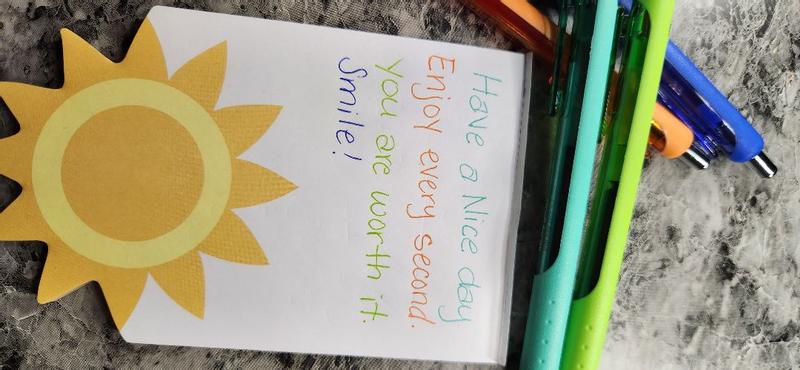 Have a Nice day
Enjoy every second.
You are worth it.
Smile!